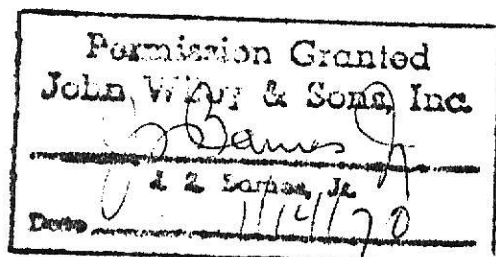 Permission Granted
John Wiley & Sons, Inc.
Barnes Jr
Barnes, Jr.
Date